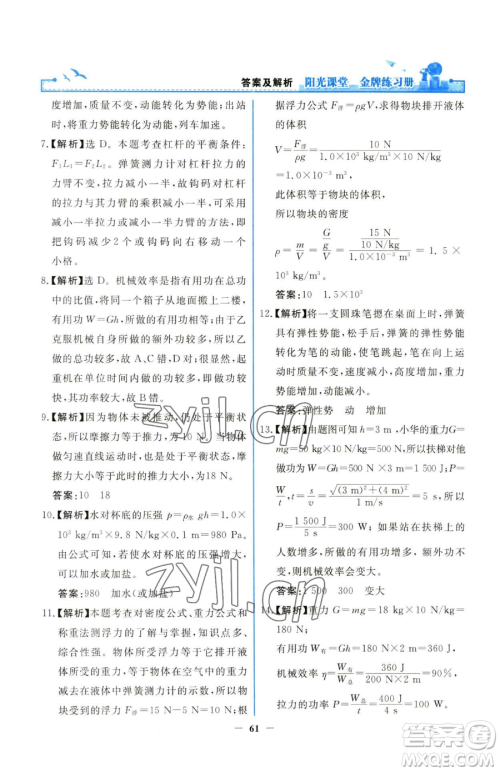 答案及解析 阳光课堂 金牌练习册
度增加，质量不变，动能转化为势能；出站
时，将重力势能转化为动能，列车加速。
7.【解析】选 D。本题考查杠杆的平衡条件：
F₁L₁=F₂L₂。弹簧测力计对杠杆拉力的
力臂不变，大小减少一半，故钩码对杠杆
的拉力与其力臂的乘积减少一半，力臂不
变则力减少一半或力不变力臂减少一半，
即把钩码减少2个或钩码向右移动三个
小格。
8.【解析】选 D。机械效率是有用功在总功
中的比值，将同一个箱子从地面搬上二楼，
有用功 W=Gh，所做的有用功相等；由于乙
克服机械自身所做的额外功较多，故乙做
的总功较多，故A、C错，D对；功率是
机器在单位时间内做的功，不知做功时间，
其功率较大不一定做功较多，故B错。
9.【解析】因为物体未被推动，仍处于平衡状
态，所以摩擦力等于推力，为10 N。当物体
做匀速直线运动时，也是处于平衡状态，
摩擦力大小等于此时的推力大小，为18 N。
答案：10 18
10.【解析】水对杯底的压强 p=ρ水 gh=1.0×
10³ kg/m³×9.8 N/kg×0.1 m=980 Pa。
由公式可知，若使水对杯底的压强增大，
可以加水或加盐。
答案：980 加水（或加盐）
11.【解析】本题考查对密度公式、重力公式和
称重法测浮力的认识，知识点多、
综合性强。物体浸没在液体中排开液
体所受的重力，等于物体在空气中的重力
减去在液体中弹簧测力计的示数，所以物
块受到的浮力为15 N-5 N=10 N；根
据浮力公式 F浮=ρgV，求得物块排开液体
的体积
V=F浮/ρg=10 N/(1.0×10³ kg/m³×10 N/kg)
=1.0×10⁻³ m³，
此体积等于物块的体积
所以物块的密度
ρ=m/V=(G/g)/V=(15 N/10 N/kg)/(1.0×10⁻³ m³)=1.5×
10³ kg/m³。
答案：10 1.5×10³
12.【解析】将一支圆珠笔摁在桌面上时，弹簧
的弹性势能增大，松手后，弹簧的弹性势能
转化为笔的动能，使笔跳起来，笔在向上运
动过程中，速度减小，高度增加，所以动能
减小，重力势能增加。
答案：弹性势 动 增加
13.【解析】由题图可知 h=3 m，小华的重力G=
mg=50 kg×10 N/kg=500 N，所以扶梯对他
做功为 W=Gh=500 N×3 m=1 500 J；P=
W/t，t=s/v=√((3 m)²+(4 m)²)/(1 m/s)=5 s，所以
P=W/t=1 500 J/5 s=300 W；如果站在扶梯上的
人数增多，所做的有用功增加，额外功几乎
不变，机械效率会变大。
答案：1 500 300 变大
14.【解析】重力 G=mg=18 kg×10 N/kg
=180 N。
有用功 W有=Gh=180 N×2 m=360 J，
机械效率 η=W有/W总=360 J/(200 N×2 m)=90%，
拉力的功率 P=W总/t=400 J/4 s=100 W
61
zyjl.cn
zyjl.cn